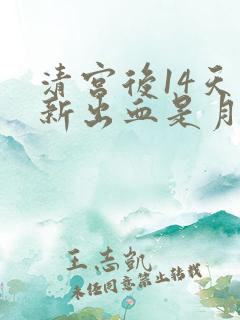 清宫後14天
新出血是月
王志凯
未经同意禁止转载